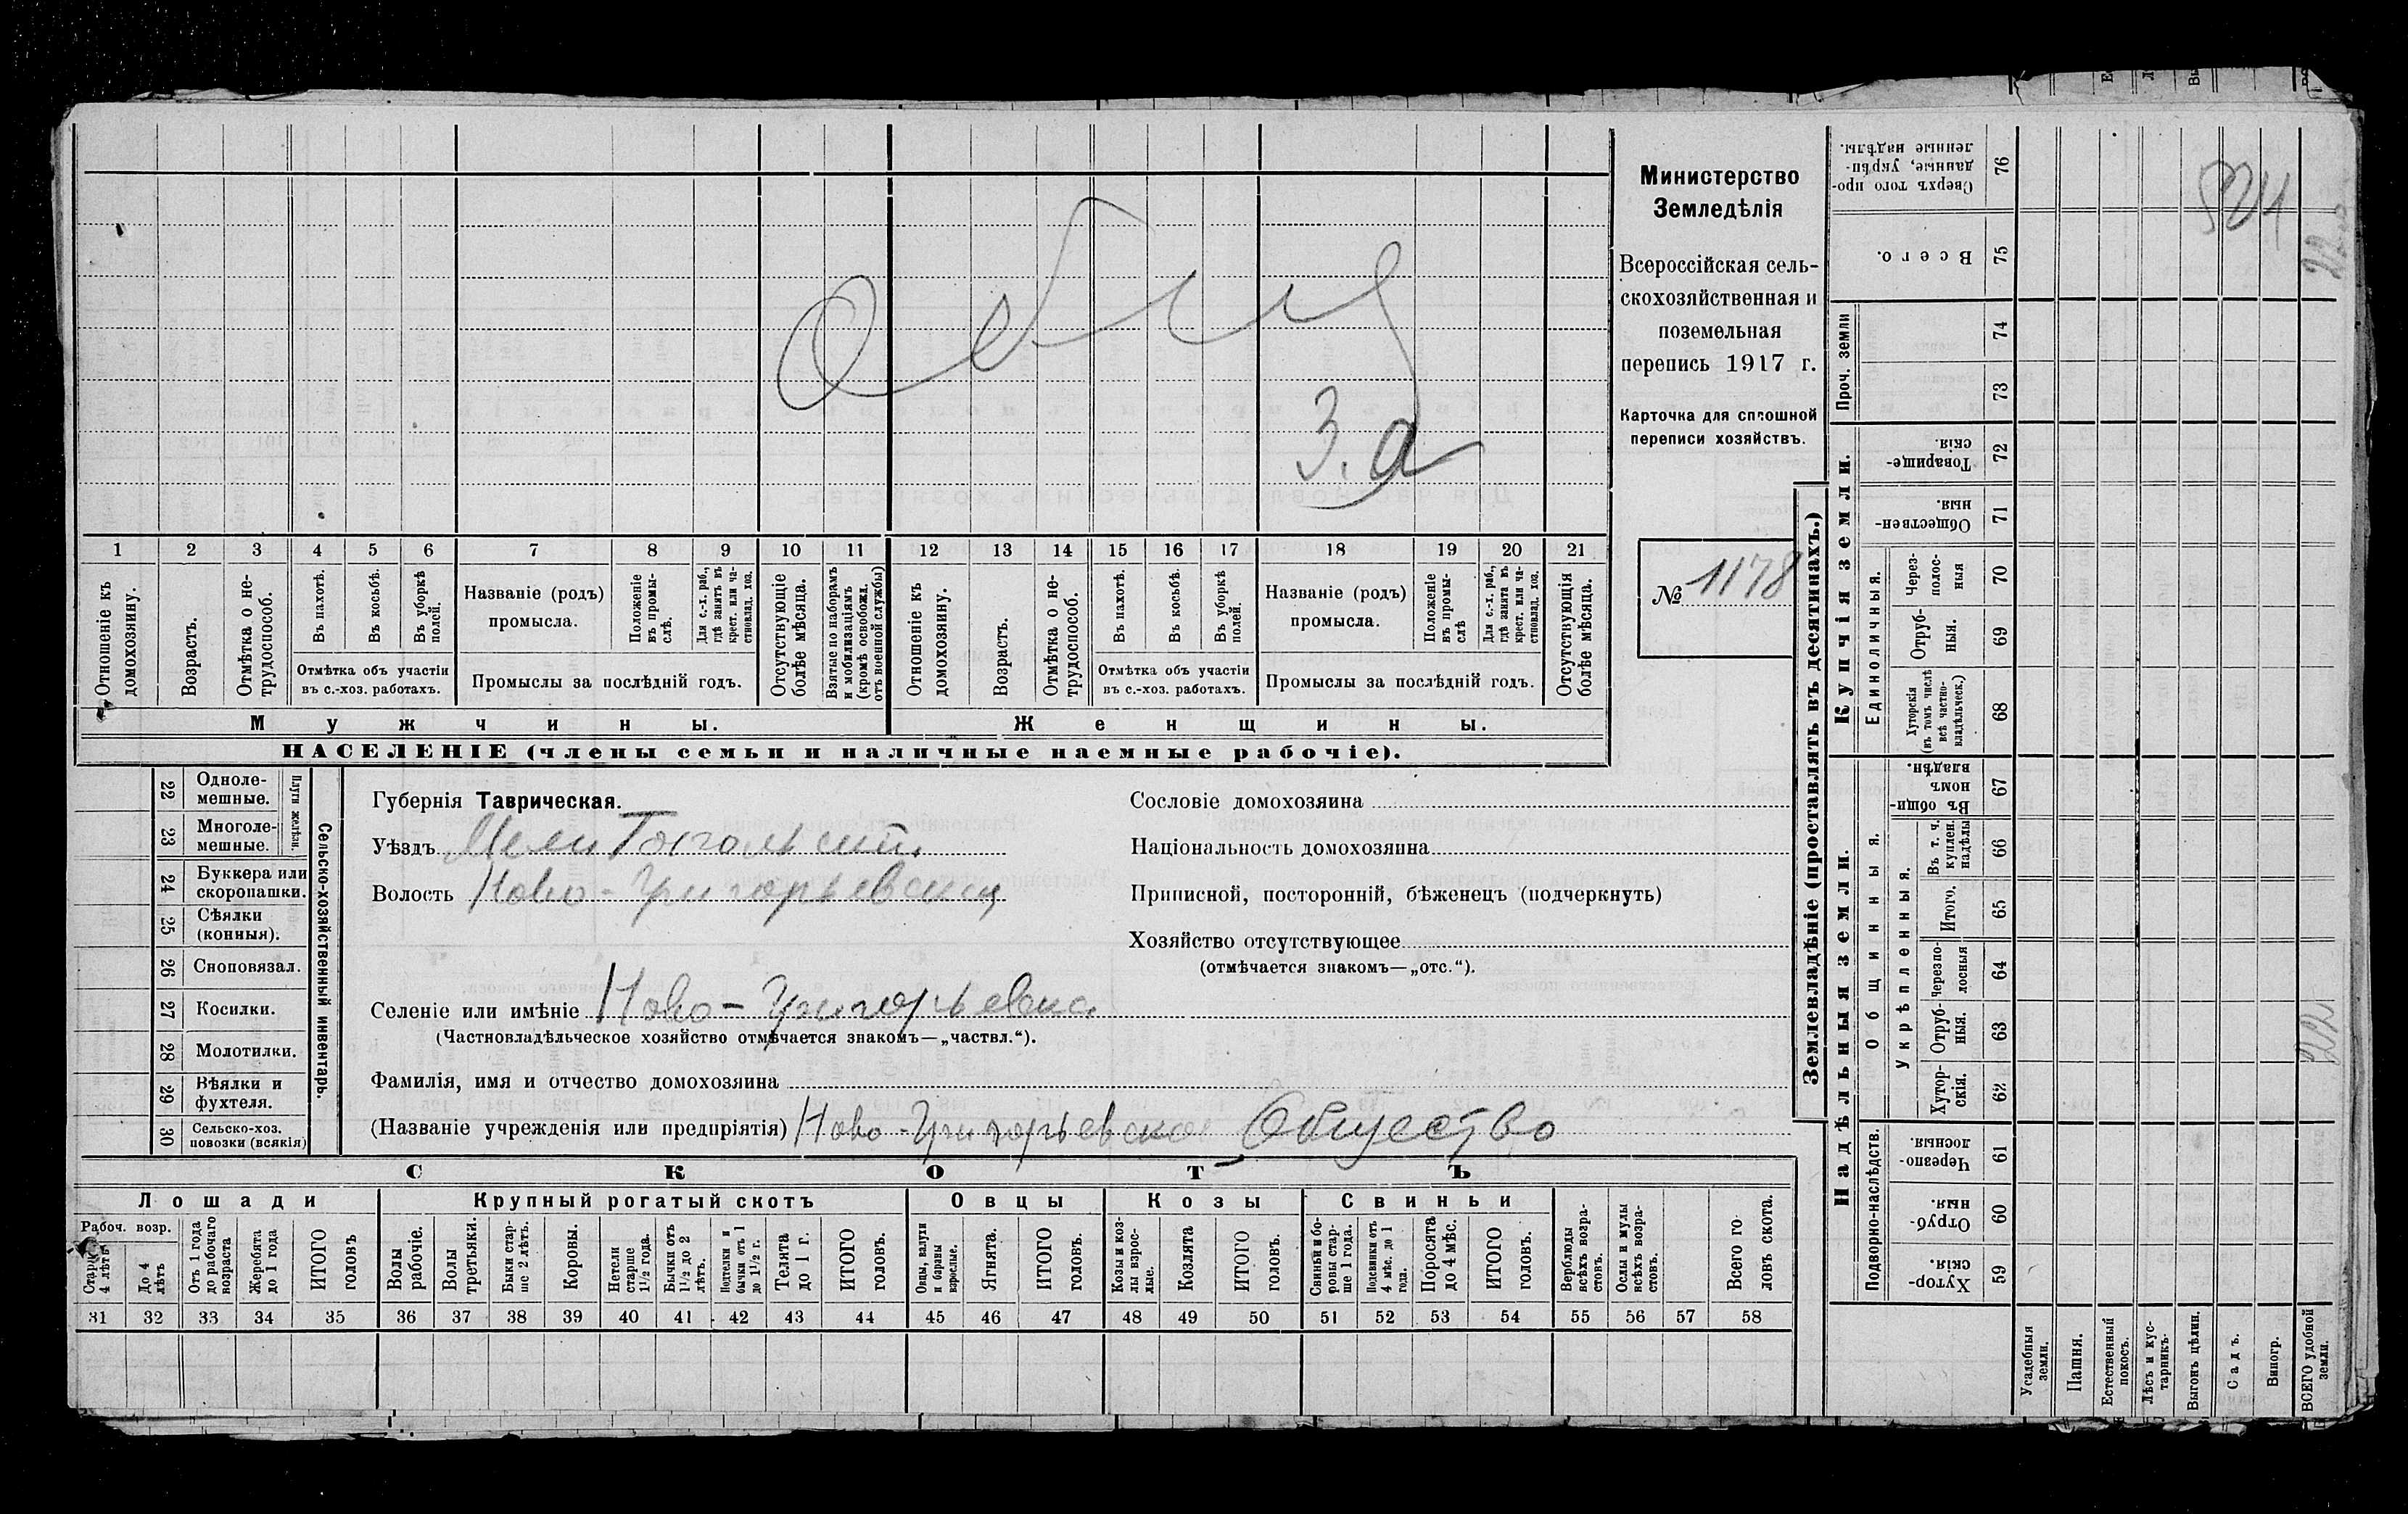 Министерство
Земледѣлія
Всероссійская сель-
скохозяйственная и
поземельная
перепись 1917 г.
Карточка для сплошной
переписи хозяйствъ.
№ 1178
3.
1 2 3 4 5 6 7 8 9 10 11 12 13 14 15 16 17 18 19 20 21
Отношеніе къ домохозяину.
Возрастъ.
Отмѣтка о не-трудоспособ.
Въ пахотѣ.
Въ косьбѣ.
Въ уборкѣ полей.
Отмѣтка объ участіи
въ с.-хоз. работахъ.
Названіе (родъ)
промысла.
Положеніе въ промы-слѣ.
Для с.-х. раб., гдѣ занятъ въ крест. или ча-стновлад. хоз.
Промыслы за послѣдній годъ.
Отсутствующіе болѣе мѣсяца.
Взятые по наборамъ и мобилизаціямъ (кромѣ освобожд. отъ военной службы)
Отношеніе къ домохозяину.
Возрастъ.
Отмѣтка о не-трудоспособ.
Въ пахотѣ.
Въ косьбѣ.
Въ уборкѣ полей.
Отмѣтка объ участіи
въ с.-хоз. работахъ.
Названіе (родъ)
промысла.
Положеніе въ промы-слѣ
Для с.-х. раб., гдѣ занята въ крест. или ча-стновлад. хоз.
Промыслы за послѣдній годъ.
Отсутствующія болѣе мѣсяца.
Мужчины.
Женщины.
НАСЕЛЕНІЕ (члены семьи и наличные наемные рабочіе).
22 Одноле-мешные.
23 Многоле-мешные.
Плуги желѣзн.
24 Буккера или скоропашки.
25 Сѣялки (конныя).
26 Сноповязал.
27 Косилки.
28 Молотилки.
29 Вѣялки и фухтеля.
30 Сельско-хоз. повозки (всякія)
Сельско-хозяйственный инвентарь.
Губернія Таврическая.
Уѣздъ Мелитопольскій.
Волость Ново-Григорьевская
Селеніе или имѣніе Ново-Григорьевка
(Частновладѣльческое хозяйство отмѣчается знакомъ—„частвл.“).
Фамилія, имя и отчество домохозяина
(Названіе учрежденія или предпріятія) Ново-Григорьевское Общество
Сословіе домохозяина
Національность домохозяина
Приписной, посторонній, бѣженецъ (подчеркнуть)
Хозяйство отсутствующее
(отмѣчается знакомъ—„отс.“).
СКОТЪ
Лошади
Крупный рогатый скотъ
Овцы
Козы
Свиньи
Рабоч. возр.
Старше 4 лѣтъ
До 4 лѣтъ
Отъ 1 года до рабочаго возраста
Жеребята до 1 года
ИТОГО головъ
Волы рабочіе.
Волы третьяки.
Быки стар-ше 2 лѣтъ.
Коровы.
Нетели старше 1½ года.
Бычки отъ 1½ до 2 лѣтъ.
Подтелки и бычки отъ 1 до 1½ г.
Телята до 1 г.
ИТОГО головъ.
Овцы, валухи и бараны взрослые.
Ягнята.
ИТОГО головъ.
Козы и коз-лы взрос-лые.
Козлята
ИТОГО головъ.
Свиньи и бо-ровы стар-ше 1 года.
Подсвинки отъ 4 мѣс. до 1 года.
Поросята до 4 мѣс.
ИТОГО головъ.
Верблюды всѣхъ возра-стовъ.
Ослы и мулы всѣхъ возра-стовъ.
Всего го-ловъ скота.
31 32 33 34 35 36 37 38 39 40 41 42 43 44 45 46 47 48 49 50 51 52 53 54 55 56 57 58
Землевладѣніе (проставлять въ десятинахъ.)
Купчія земли.
Надѣльныя земли.
Проч. земли
Единоличныя.
Общинныя.
Укрѣпленныя.
Подворно-наслѣдств.
76 Сверхъ того про-данные, укрѣп-ленные надѣлы.
75 Всего.
74
73
72 Товарище-скія.
71 Обществен-ныя.
70 Через-полос-ныя
69 Отруб-ныя.
68 Хуторскія (въ томъ числѣ всѣ частно-владѣльческ.)
67 Въ общин-номъ владѣн.
66 Въ т. ч. куплен. надѣлы
65 Итого.
64 Черезпо-лосныя
63 Отруб-ныя.
62 Хутор-скія.
61 Черезпо-лосныя.
60 Отруб-ныя.
59 Хутор-скія.
Усадебныя земли.
Пашня.
Естественный покосъ.
Лѣсъ и кус-тарникъ.
Выгонъ цѣлин.
Садъ.
Виногр.
ВСЕГО удобной земли.